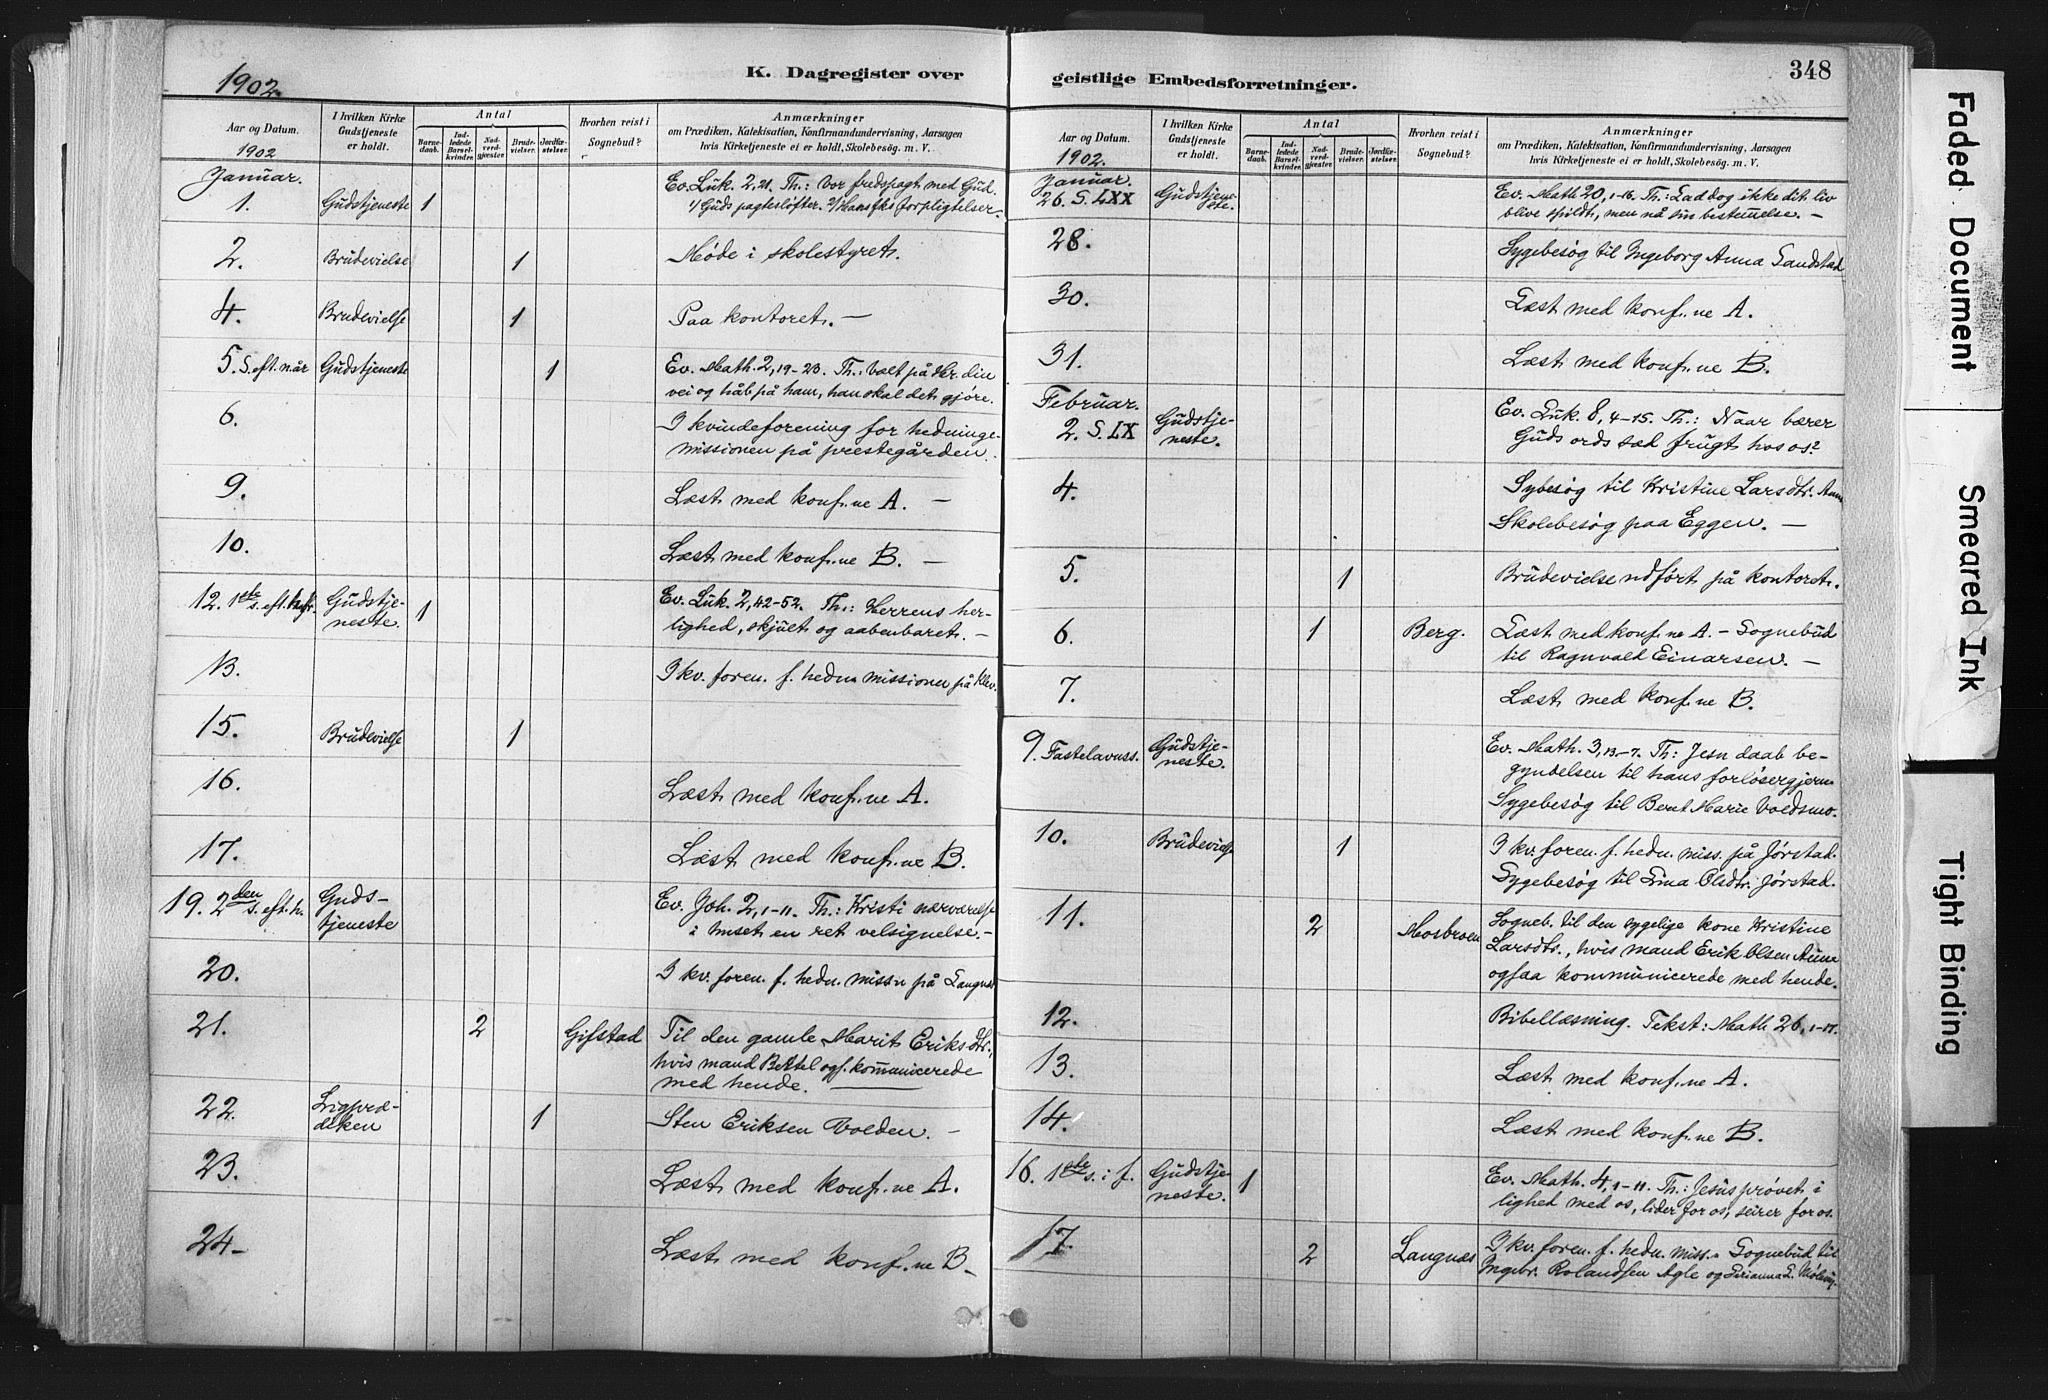 1902.
K. Dagregister over
Aar og Datum.
I hvilken Kirke Gudstjeneste er holdt.
Antal
Barne-daab.
Ind-ledede Barsel-kvinder.
Nad-verd-gjæster.
Brude-vielser.
Jordfæ-stelser.
Hvorhen reist i Sognebud?
Anmærkninger
om Prædiken, Katekisation, Konfirmandundervisning, Aarsagen
hvis Kirketjeneste ei er holdt, Skolebesøg. m. V.
1902
Januar.
1. Gudstjeneste 1 Ev. Luk. 2,21. Th.: Vor fredspagt med Gud.
1/ Guds pagtesløfter. 2/ forpligtelser.
2. Brudevielse 1 Møde i skolestyret.
4. Brudevielse 1 Paa kontoret. —
5. S. eft. når Gudstjeneste 1 Ev. Math. 2,19-23. Th.: Vælt på Hr. din
vei og håb på ham, han skal det gjøre.
6. I kvindeforening for hedninge-
missionen på prestegården.
9. Læst med konf.ne A. —
10. Læst med konf.ne B. —
12. 1ste s. eft. Gudstje-
neste. 1 Ev. Luk. 2,42-52. Th.: Herrens her-
lighed, skjult og aabenbaret. —
13. I kv. foren. f. hedn. missionen på Klev.
15. Brudevielse 1
16. Læst med konf.ne A.
17. Læst med konf.ne B.
19. 2den s. eft. h. Guds-
tjeneste Ev. Joh. 2,1-11. Th.: Kristi nærværelse
i huset en ret velsignelse. —
20. I kv. foren. f. hedn. miss.n på Langnes
21. 2 Gifstad Til den gamle Marit Eriksdtr.,
hvis mand Bertel ogs. kommunicerede
med hende. —
22. Ligpræ-
diken 1 Sten Eriksen Volden. —
23. Læst med konf.ne A.
24. Læst med konf.ne B.
geistlige Embedsforretninger.
348
Aar og Datum.
I hvilken Kirke Gudstjeneste er holdt.
Antal
Barne-daab.
Ind-ledede Barsel-kvinder.
Nad-verd-gjæster.
Brude-vielser.
Jordfæ-stelser.
Hvorhen reist i Sognebud?
Anmærkninger
om Prædiken, Katekisation, Konfirmandundervisning, Aarsagen
hvis Kirketjeneste ei er holdt, Skolebesøg. m. V.
1902.
Januar.
26. S. LXX Gudstjene-
ste. Ev. Math 20,1-16. Th.: Lad dog ikke dit liv
blive spildt, men nå sin bestemelse. —
28. Sygebesøg til Ingeborg Anna Sandstad
30. Læst med konf.ne A.
31. Læst med konf.ne B.
Februar.
2. S. LX Gudstje-
neste. Ev. Luk. 8,4-15. Th.: Naar bærer
Guds ords sæd frugt hos os?
4. Sybesøg til Kristine Larsdtr. Aune
Skolebesøg paa Eggen. —
5. 1 Brudevielse udført på kontoret.
6. 1 Berg. Læst med konf.ne A. — Sognebud
til Ragnvald Einarsen. —
7. Læst med konf.ne B.
9. Fastelavnss. Gudstje-
neste. Ev. Math. 3,13-7. Th.: Jesu daab be-
gyndelsen til hans forløsergjern.
Sygebesøg til Bent Marie Voldsmo.
10. Brudevielse 1 I kv. foren. f. hedn. miss. på Jørstad.
Sygebesøg til Lina Olsdtr. Jørstad.
11. 2 Mosbroen Sogneb. til den sygelige kone Kristine
Larsdtr., hvis mand Erik Olsen Aune
ogsaa kommunicerede med hende.
12. Bibellæsning. Tekst: Math 26,1-17.
13. Læst med konf.ne A.
14. Læst med konf.ne B.
16. 1ste s. i f. Gudstje-
neste. 1 Ev. Math. 4,1-11. Th.: Jesus prøvet i
lighed med os, lider for os, seirer for os.
17. 2 Langnæs I kv. foren. f. hedn. miss. Sognebud til
Ingebr. Rolandsen Agle og
Faded Document
Smeared Ink
Tight Binding